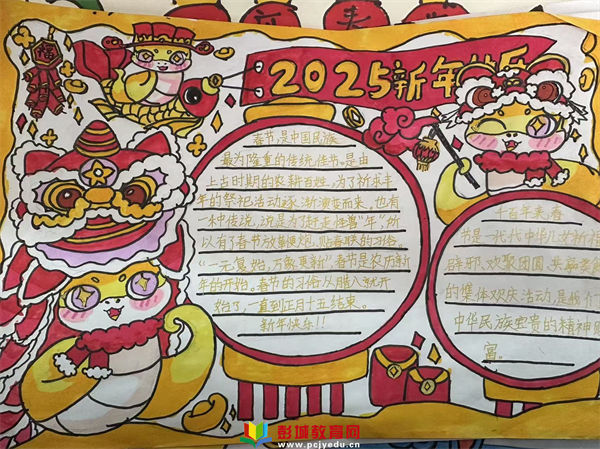 2025新年快乐
福
春节,是中国民族
最为隆重的传统佳节。是由
上古时期的农耕百姓,为了祈求丰
年的祭祀活动逐渐演变而来,也有
一种传说,说是为了赶走怪兽“年”,所
以有了春节放鞭炮,贴春联的习俗。
“一元复始,万象更新”春节是农历新
年的开始。春节的习俗从腊八就开
始了,一直到正月十五结束。
新年快乐!!
千百年来,春
节是一代代中华儿女祈福
辟邪、欢聚团圆、共
的集体欢庆活动,是
中华民族宝贵的精神财
富。
彭城教育网
www.pcjyedu.cn